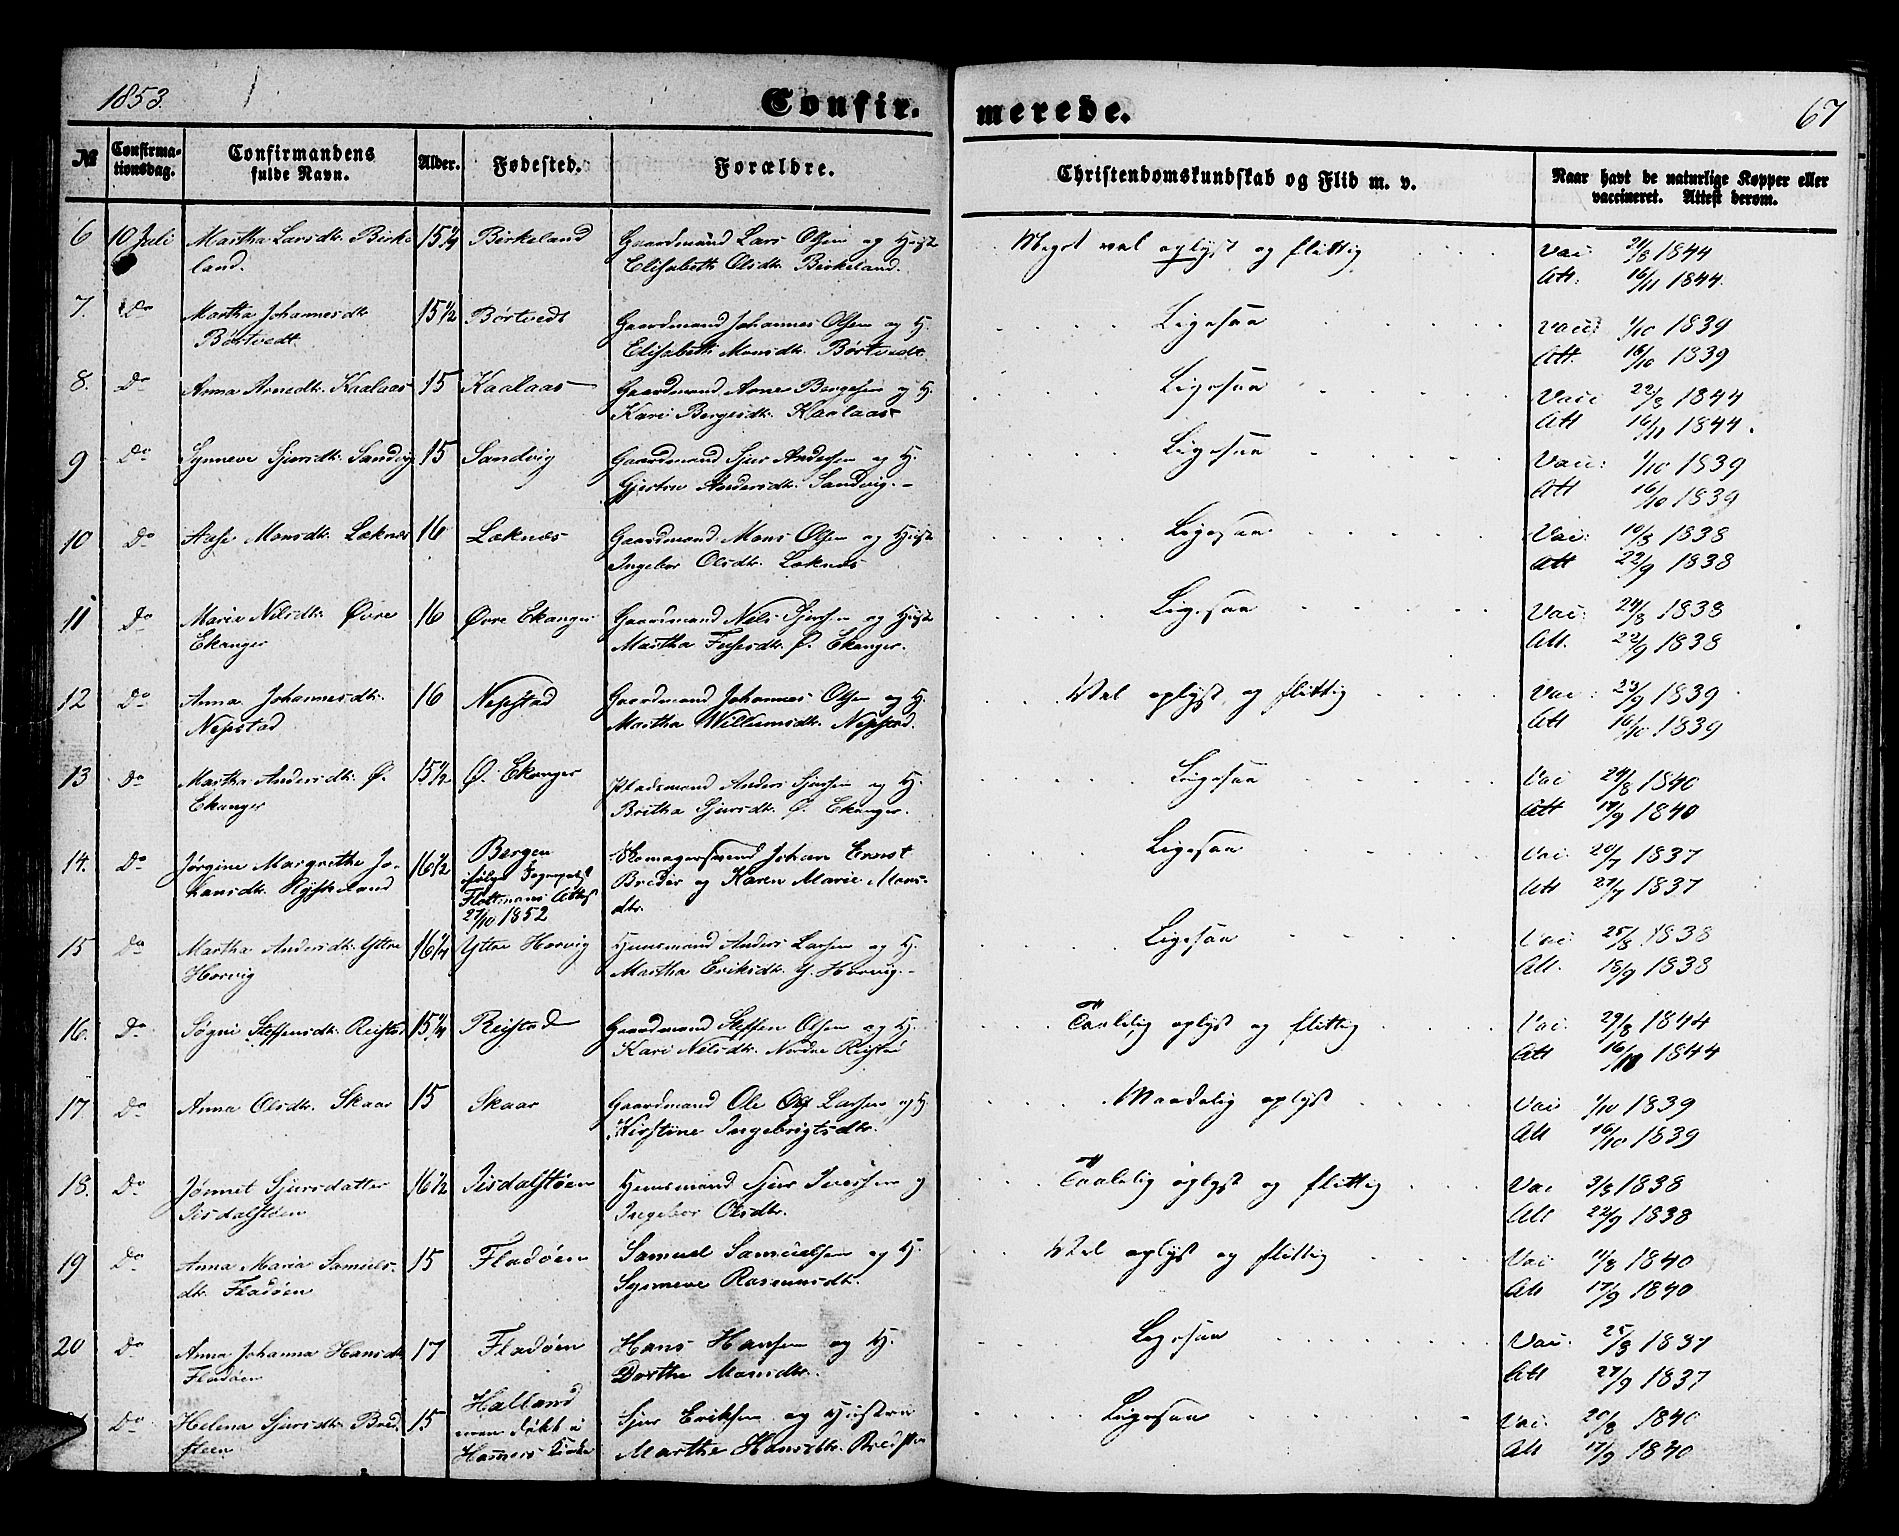 1853.
Confir.
merede.
67
№
Confirma-
tionsdag.
Confirmandens
fulde Navn.
Alder.
Fødested.
Forældre.
Christendomskundskab og Flid m. v.
Naar havt de naturlige Kopper eller
vaccineret. Attest derom.
6 10 Juli Martha Larsdtr. Birke 15 1/4 Birkeland Gaardmand Lars Olsen og Hust Meget vel oplyst og flittig Vac: 21/8 1844
land. Elisabeth Olsdtr. Birkeland. Att: 16/11 1844.
7. Do Martha Johannesdtr 15 1/2 Børtvedt Gaardmand Johannes Olsen og H. Ligesaa Vacc: 1/10 1839
Børtvedt. Elisabeth Monsdtr. Børtvedt. Att. 16/10 1839
8. Do Anna Arnedtr. Kaalaas 15 Kaalaas Gaardmand Arne Bergesen og H. Ligesaa Vacc 22/3 1844
Kari Bergesdtr. Kaalaas Att 16/11 1844.
9 Do Synneve Sjursdtr. Sandvig 15 Sandvig Gaardmand Sjur Andersen og H. Ligesaa Vacc: 1/10 1839
Gjertru Andersdtr. Sandvig. Att 16/10 1839
10 Do Aase Monsdtr. Løknes 16 Løknæs Gaardmand Mons Olsen og Hust Ligesaa Vac: 10/8 1838
Ingebor Olsdtr. Løknes Att 22/9 1838
11 Do Marie Nilsdtr. Øvre 16 Øvre Ekanger Gaardmand Nils Sjursen og Hust Ligesaa Vac: 24/8 1838
Ekanger Martha Ø. Ekanger. Att. 22/9 1838
12 Do Anna Johannesdtr. 16 Nepstad Gaardmand Johannes Olsen og H. Vel oplyst og flittig Vac: 23/9 1839
Nepstad Martha Willumsdtr. Nepstad. Att 16/10 1839
13 Do Martha Andersdtr. Ø. 15 1/2 Ø. Ekanger Pladsmand Anders Sjursen og H. Ligesaa Vac 24/8 1840
Ekanger Britha Sjursdtr. Ø. Ekanger. Att 17/9 1840
14. Do Jørgine Margrethe Jo- 16 1/2 Bergen Johan Ernst Ligesaa Vac: 20/7 1837
hansdtr. Bredér og Karen Marie Mons- Att 27/7 1837
ifølge Attest
27/10 1852 dtr.
15 Do Martha Andersdtr. Yttre 16 1/4 Yttre Horvig Huusmand Anders Larsen og H. Ligesaa Vac: 25/8 1838
Horvig Martha Eriksdtr. Y. Horvig. Att. 18/9 1838
16. Do Søgni Steffensdtr. Reistad 15 1/4 Reistad Gaardmand Steffen Olsen og H. Taalelig oplyst og flittig Vac: 29/8 1844
Kari Nilsdtr. Nordre Reistad Att 16/11 1844
17. Do Anna Olsdtr. Skaar 15 Skaar Gaardmand Ole Larsen og H. Maadelig oplyst Vac 1/10 1839
Kirstine Ingebrigtsdtr. Att 16/10 1839
18. Do Jønnet Sjursdatter 16 1/2 Iisdalstøen Huusmand Sjur Iversen og Taalelig oplyst og flittig Vac 3/8 1838
Iisdalstøen Ingebor Olsdtr. Att 22/9 1838
19 Do Anna Maria Samuels- 15 Fladøen Samuel Samuelsen og H. Vel oplyst og flittig Vac: 11/8 1840
dtr. Fladøen Synneve Rasmusdtr. Att 17/9 1840
20 Do Anna Johanna Hansdtr 17 Fladøen Hans Hansen og H. Ligesaa Vac: 25/8 1837
Fladøen Dorthe Monsdtr. Att 27/9 1837
Do Helena Sjursdtr. Bred 15 Halland Sjur Eriksen og Hustru Ligesaa Vac: 20/8 1840
steen men døbt i Marthe Hansdtr. Bredsteen Att 17/9 1840
Hammers Kirke